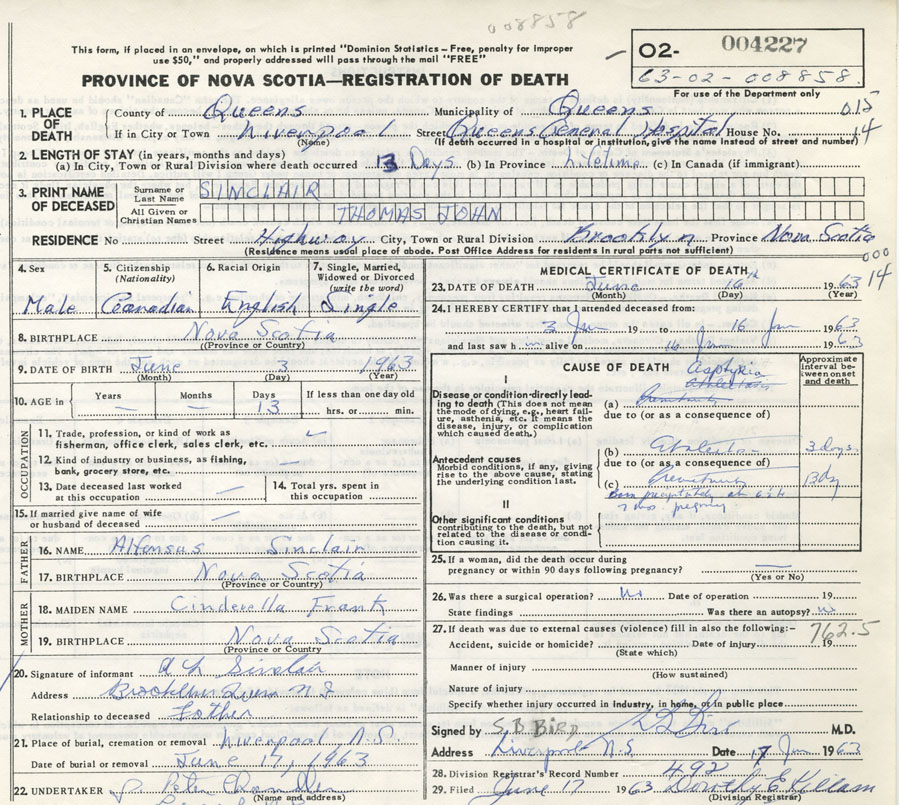 008858
This form, if placed in an envelope, on which is printed "Dominion Statistics – Free, penalty for improper
use $50," and properly addressed will pass through the mail "FREE"
PROVINCE OF NOVA SCOTIA—REGISTRATION OF DEATH
O2- 004227
63-02-008858.
For use of the Department only
1. PLACE OF DEATH
County of Queens Municipality of Queens 015
If in City or Town Liverpool Street Queens General Hospital House No. 14
(Name) (If death occurred in a hospital or institution, give the name instead of street and number)
2. LENGTH OF STAY (in years, months and days)
(a) In City, Town or Rural Division where death occurred 13 Days (b) In Province Lifetime (c) In Canada (if immigrant)
3. PRINT NAME OF DECEASED
Surname or Last Name SINCLAIR
All Given or Christian Names THOMAS JOHN
RESIDENCE No Street Highway City, Town or Rural Division Brooklyn Province Nova Scotia
(Residence means usual place of abode. Post Office Address for residents in rural parts not sufficient)
000
14
4. Sex 5. Citizenship (Nationality) 6. Racial Origin 7. Single, Married, Widowed or Divorced (write the word)
Male Canadian English Single
8. BIRTHPLACE Nova Scotia
(Province or Country)
9. DATE OF BIRTH June 3 1963
(Month) (Day) (Year)
10. AGE in Years Months Days If less than one day old
— — 13 hrs. or min.
OCCUPATION
11. Trade, profession, or kind of work as
fisherman, office clerk, sales clerk, etc.
12. Kind of industry or business, as fishing,
bank, grocery store, etc. —
13. Date deceased last worked
at this occupation —
14. Total yrs. spent in
this occupation
15. If married give name of wife
or husband of deceased —
FATHER
16. NAME Alfonsus Sinclair
17. BIRTHPLACE Nova Scotia
(Province or Country)
MOTHER
18. MAIDEN NAME Cinderella Frank
19. BIRTHPLACE Nova Scotia
(Province or Country
20. Signature of informant Sinclair
Address Brooklyn Queens N S
Relationship to deceased Father
21. Place of burial, cremation or removal Liverpool N.S.
Date of burial or removal June 17, 1963
22. UNDERTAKER Peter Chandler
(Name and address)
MEDICAL CERTIFICATE OF DEATH
23. DATE OF DEATH June 16th 1963
(Month) (Day) (Year)
24. I HEREBY CERTIFY that I attended deceased from:
3 Jun 19 to 16 Jun 1963
and last saw h m alive on 16 Jun 1963
CAUSE OF DEATH
Approximate interval between onset and death
I
Disease or condition directly leading to death (This does not mean the mode of dying, e.g., heart failure, asthenia, etc. It means the disease, injury, or complication which caused death.)
Asphyxia
(a)
due to (or as a consequence of)
Antecedent causes
Morbid conditions, if any, giving rise to the above cause, stating the underlying condition last.
(b) 3 days
due to (or as a consequence of)
(c) Prematurity 13 dy
Born precipitately at
pregnancy
II
Other significant conditions
contributing to the death, but not related to the disease or condition causing it.
25. If a woman, did the death occur during
pregnancy or within 90 days following pregnancy? —
(Yes or No)
26. Was there a surgical operation? No Date of operation 19
State findings Was there an autopsy? No
27. If death was due to external causes (violence) fill in also the following:— 762.5
Accident, suicide or homicide? Date of injury 19
(State which)
Manner of injury
(How sustained)
Nature of injury
Specify whether injury occurred in industry, in home, or in public place
Signed by S D Bird M.D.
Address Liverpool N.S Date 17 Jun 1963
28. Division Registrar's Record Number 492
29. Filed June 17 1963 Dorothy E Killam
(Division Registrar)